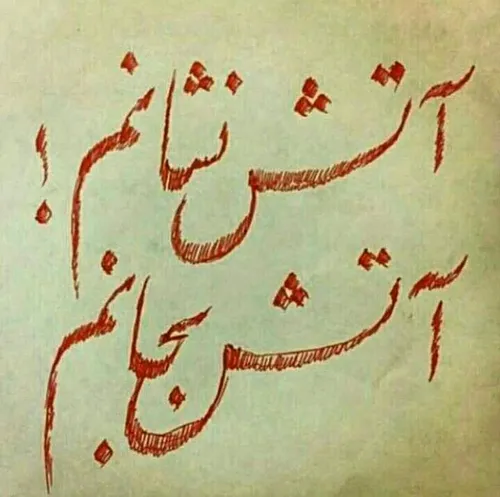 آتش نشانم !
آتش بجانم